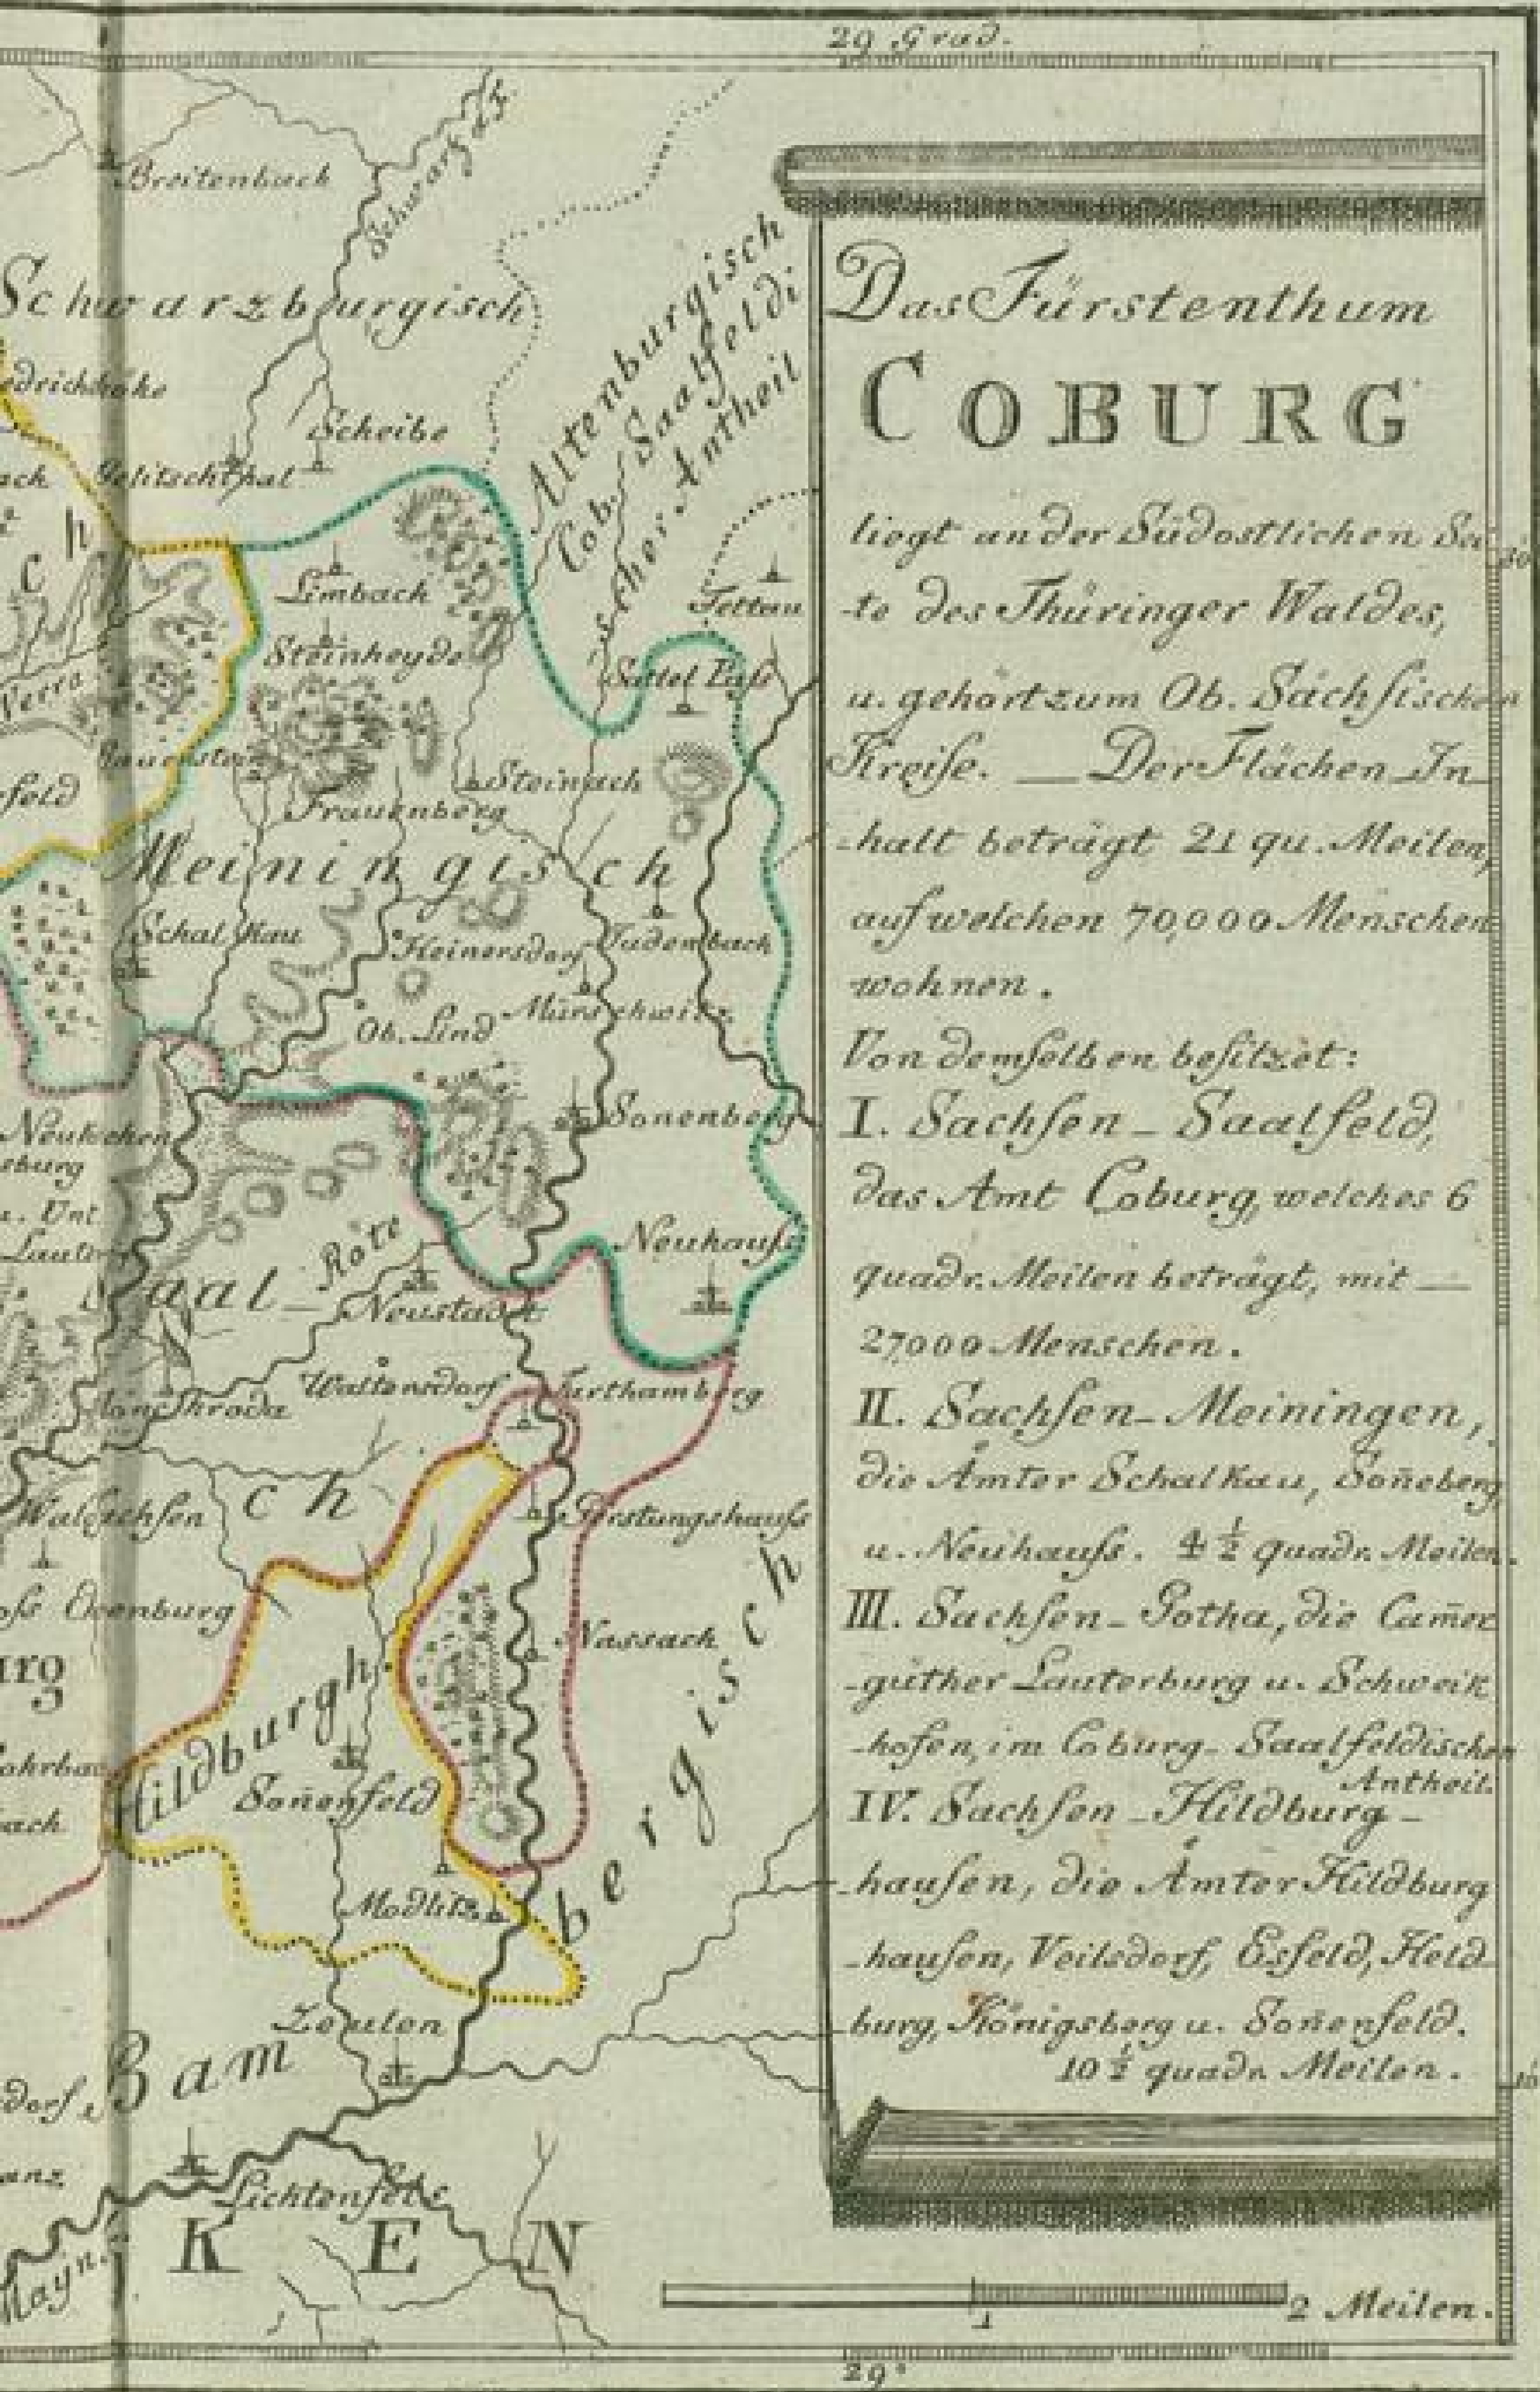 29 Grad.
Breitenbach
Schwarza
Schwarzburgisch
Scheibe
Altenburgisch
Cob. Saalfeldi
scher Antheil
Limbach
Tettau
Steinheyde
Sattel Pass
Steinach
feld
Frauenberg
Meiningisch
Schalkau
Heinersdorf
Judembach
Ob. Lind
Mürschwitz
Neukichen
Sonenberg
sburg
u. Unt
Neuhauſs
Röte
Saal
Neustadt
Waltersdorf
Furthamberg
Mönchroda
ch
Walsachsen
Fürstungshauſs
Nassach
Hildburgh.
Soñenfeld
Modlitz
Zeulen
Bam
bergisch
dorf
Lichtenfels
KEN
Mayn
Das Fürstenthum
COBURG
liegt an der Südostlichen Sei
-te des Thüringer Waldes,
u. gehört zum Ob. Sächſischen
Kreiſe. — Der Flächen-In-
-halt beträgt 21 qu. Meilen,
auf welchen 70,000 Menschen
wohnen.
Von demſelben beſitzet:
I. Sachſen-Saalfeld,
das Amt Coburg, welches 6
quadr. Meilen beträgt, mit —
27,000 Menschen.
II. Sachſen-Meiningen,
die Ämter Schalkau, Soñeberg,
u. Neuhauſs. 4 1/2 quadr. Meilen.
III. Sachſen-Gotha, die Cam̃er
-güther Lauterburg u. Schweik
-hofen, im Coburg-Saalfeldischen
Antheil.
IV. Sachſen-Hildburg-
-hauſen, die Ämter Hildburg
-hauſen, Veilsdorf, Eisfeld, Held-
burg, Königsberg u. Soñenfeld.
10 1/2 quadr. Meilen.
1
2 Meilen.
29°